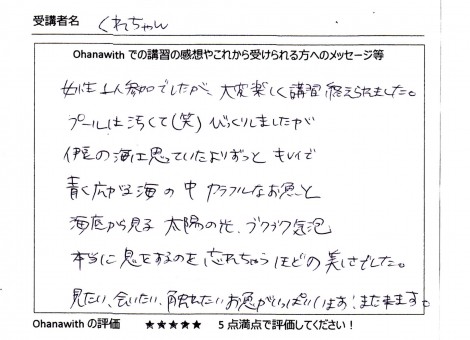 受講者名 くれちゃん
Ohanawith での講習の感想やこれから受けられる方へのメッセージ等
女性1人参加でしたが、大変楽しく講習終えられました。
プールは汚くて(笑)びっくりしましたが
伊豆の海は思っていたよりずっとキレイで
青く広がる海の中カラフルなお魚と
海底から見る太陽の光、ブクブク気泡
本当に息をするのを忘れちゃうほどの美しさでした。
見たい、会いたい、触れたいお魚がいっぱいいます!また来ます。
Ohanawith の評価 ★★★★★ 5点満点で評価してください!